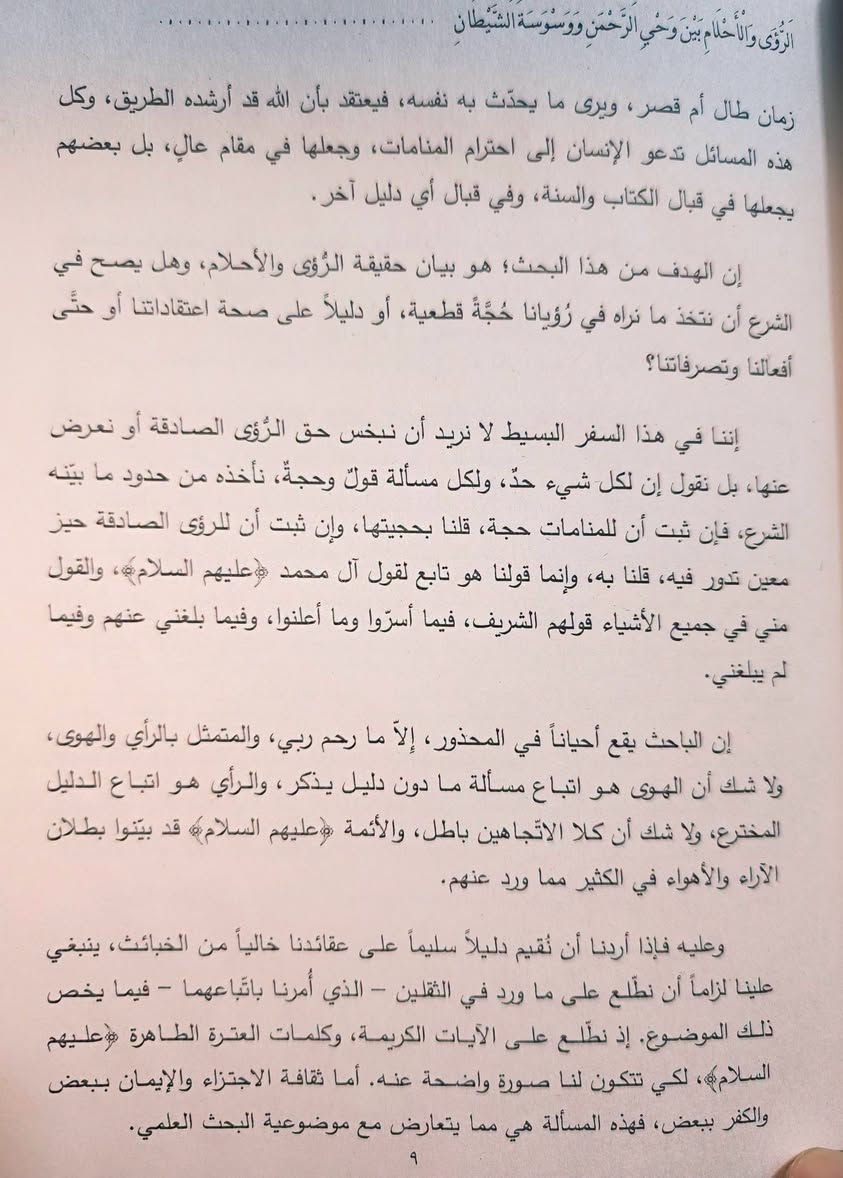 الرُّؤَى وَالْأَحْلَامِ بَيْنَ وَحْيِ الرَّحْمَنِ وَوَسْوَسَةِ الشَّيْطَانِ ........................................
زمان طال أم قصر، ويرى ما يحدّث به نفسه، فيعتقد بأن الله قد أرشده الطريق، وكل
هذه المسائل تدعو الإنسان إلى احترام المنامات، وجعلها في مقام عالٍ، بل بعضهم
يجعلها في قبال الكتاب والسنة، وفي قبال أي دليل آخر.
إن الهدف من هذا البحث؛ هو بيان حقيقة الرُّؤى والأحلام، وهل يصح في
الشرع أن نتخذ ما نراه في رُؤيانا حُجَّةً قطعية، أو دليلاً على صحة اعتقاداتنا أو حتَّى
أفعالنا وتصرفاتنا؟
إننا في هذا السفر البسيط لا نريد أن نبخس حق الرُّؤى الصادقة أو نعرض
عنها، بل نقول إن لكل شيء حدٌ، ولكل مسألة قولٌ وحجةٌ، نأخذه من حدود ما بيّنه
الشرع، فإن ثبت أن للمنامات حجة، قلنا بحجيتها، وإن ثبت أن للرؤى الصادقة حيز
معين تدور فيه، قلنا به، وإنما قولنا هو تابع لقول آل محمد ﴿عليهم السلام﴾، والقول
مني في جميع الأشياء قولهم الشريف، فيما أسرّوا وما أعلنوا، وفيما بلغني عنهم وفيما
لم يبلغني.
إن الباحث يقع أحياناً في المحذور، إلاّ ما رحم ربي، والمتمثل بالرأي والهوى،
ولا شك أن الهوى هو اتباع مسألة ما دون دليل يذكر، والرأي هو اتباع الدليل
المخترع، ولا شك أن كلا الاتّجاهين باطل، والأئمة ﴿عليهم السلام﴾ قد بيّنوا بطلان
الآراء والأهواء في الكثير مما ورد عنهم.
وعليه فإذا أردنا أن نُقيم دليلاً سليماً على عقائدنا خالياً من الخبائث، ينبغي
علينا لزاماً أن نطّلع على ما ورد في الثقلين – الذي أُمرنا باتّباعهما – فيما يخص
ذلك الموضوع. إذ نطّلع على الآيات الكريمة، وكلمات العترة الطاهرة ﴿عليهم
السلام﴾، لكي تتكون لنا صورة واضحة عنه. أما ثقافة الاجتزاء والإيمان ببعض
والكفر ببعض، فهذه المسألة هي مما يتعارض مع موضوعية البحث العلمي.
٩